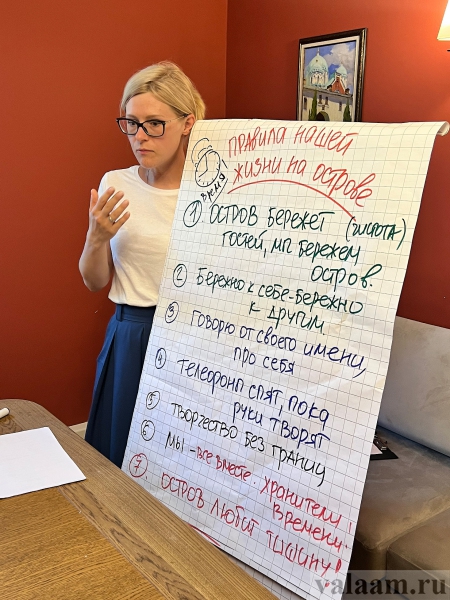 ПРАВИЛА НАШЕЙ
ЖИЗНИ НА ОСТРОВЕ
ВРЕМЯ
① ОСТРОВ БЕРЕЖЕТ (ЧИСТОТА)
ГОСТЕЙ, МЫ БЕРЕЖЕМ
ОСТРОВ.
② БЕРЕЖНО К СЕБЕ-БЕРЕЖНО
К ДРУГИМ
③ ГОВОРЮ ОТ СВОЕГО ИМЕНИ,
ПРО СЕБЯ
④ ТЕЛЕФОНЫ СПЯТ, ПОКА
РУКИ ТВОРЯТ
⑤ ТВОРЧЕСТВО БЕЗ ГРАНИЦ
⑥ МЫ - ВСЕ ВМЕСТЕ. ХРАНИТЕЛИ
ВРЕМЕНИ.
⑦ ОСТРОВ ЛЮБИТ ТИШИНУ!
valaam.ru